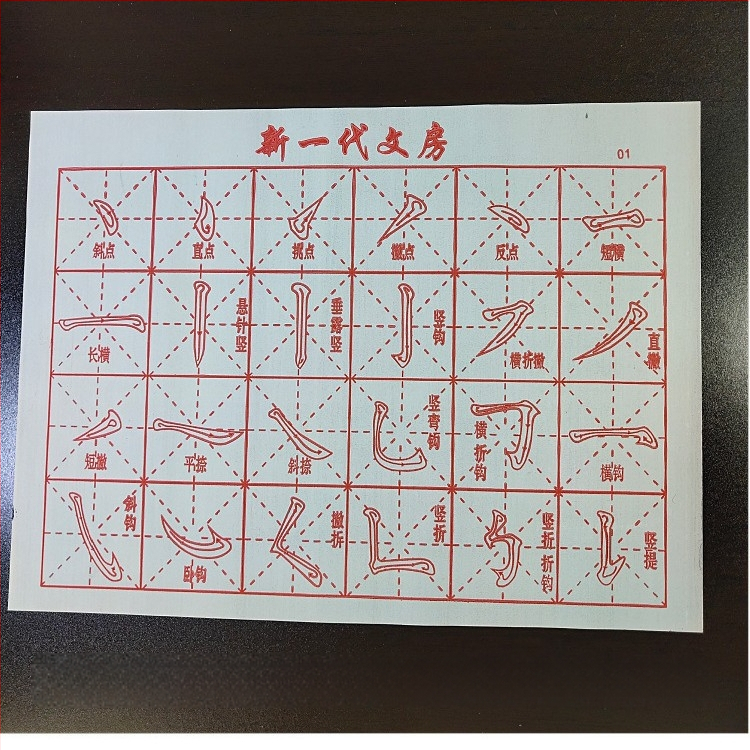 新一代文房
01
斜点 直点 挑点 撇点 反点 短横
长横 悬针竖 垂露竖 竖钩 横折撇 直撇
短撇 平捺 斜捺 竖弯钩 横折钩 横钩
斜钩 卧钩 撇折 竖折 竖折折钩 竖提